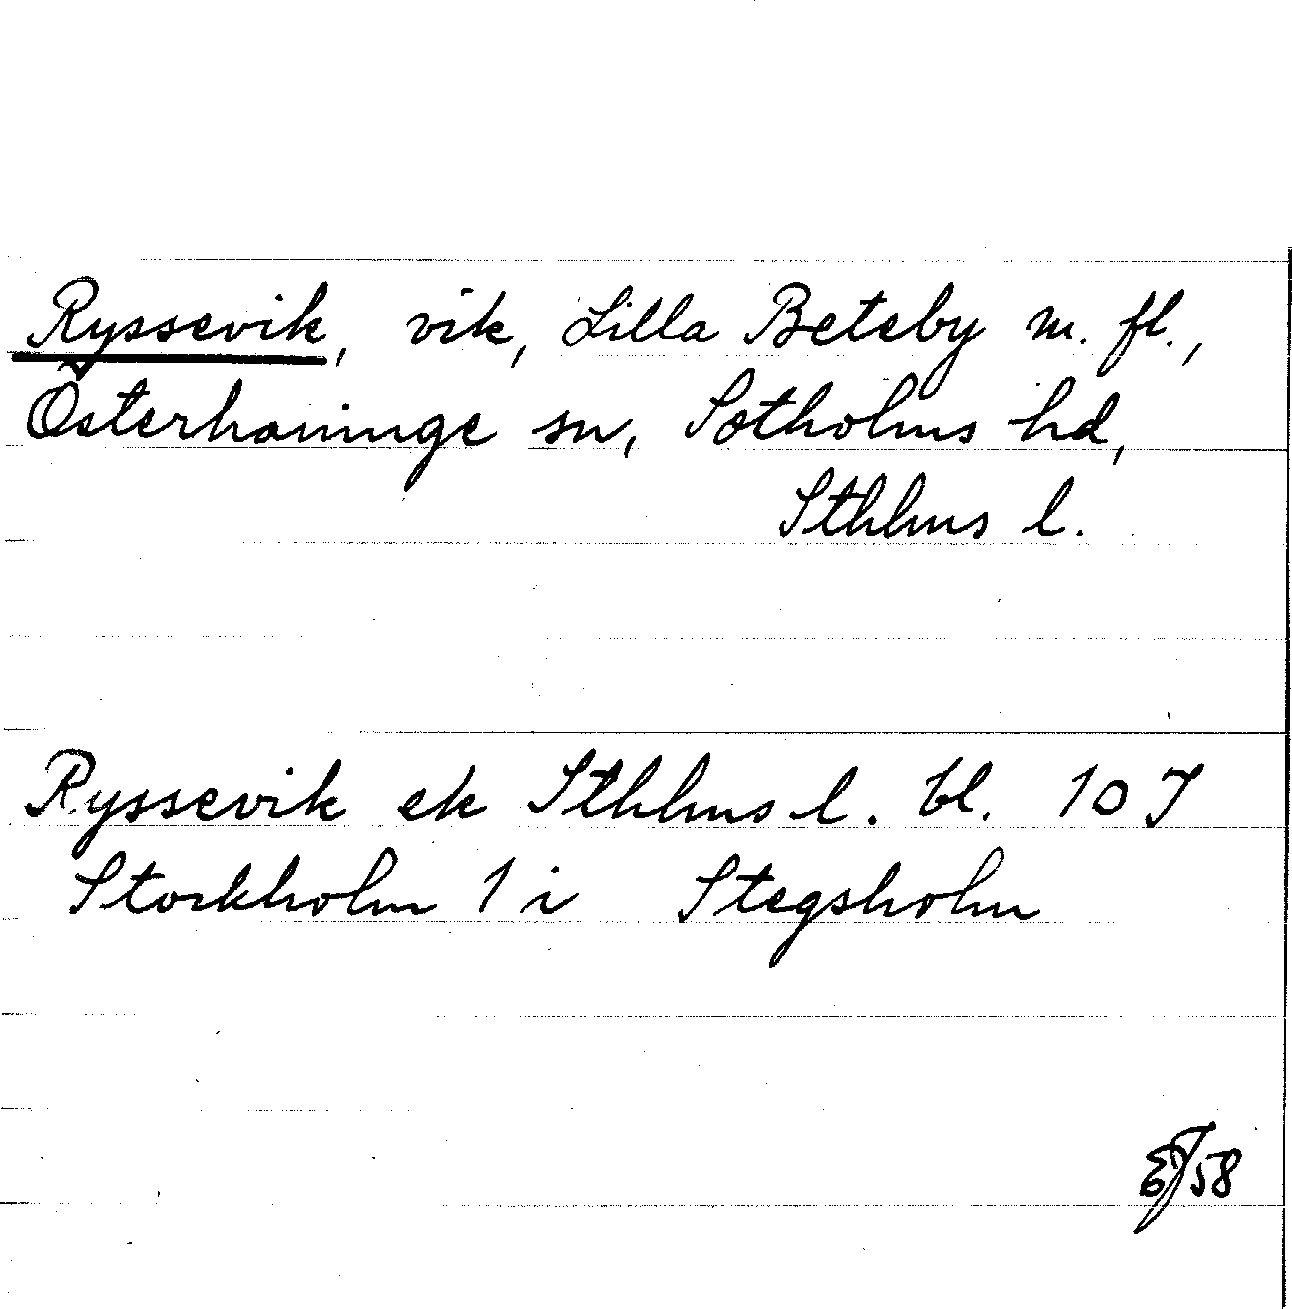 Ryssevik, vik, Lilla Beteby m. fl.,
Österhaninge sn, Sotholms hd,
Sthlms l.
Ryssevik ek Sthlms l. bl. 10 J
Storkholm 1 i Stegsholm
EJ 58